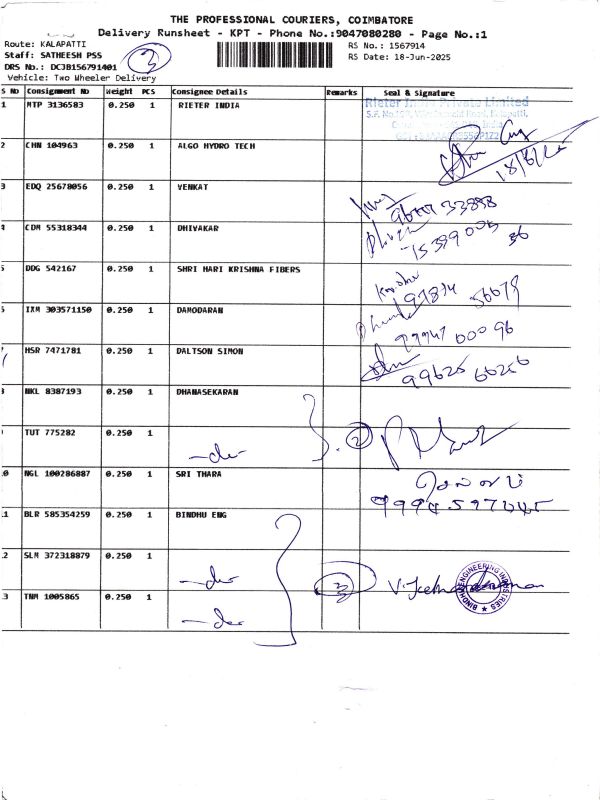 THE PROFESSIONAL COURIERS, COIMBATORE
Delivery Runsheet - KPT - Phone No.:9047080280 - Page No.:1
Route: KALAPATTI
Staff: SATHEESH PSS
DRS No.: DCJB156791401
Vehicle: Two Wheeler Delivery
3
RS No.: 1567914
RS Date: 18-Jun-2025
S No Consignment No Weight PCS Consignee Details Remarks Seal & Signature
1 MTP 3136583 0.250 1 RIETER INDIA
Rieter India Private Limited
18/6/25
2 CHN 104963 0.250 1 ALGO HYDRO TECH
3 EDQ 25678056 0.250 1 VENKAT
33898
4 CDM 55318344 0.250 1 DHIVAKAR
5 DDG 542167 0.250 1 SHRI HARI KRISHNA FIBERS
97874 56679
6 IXM 303571150 0.250 1 DAMODARAN
00096
7 HSR 7471781 0.250 1 DALTSON SIMON
99625 66266
8 NKL 8387193 0.250 1 DHANASEKARAN
9 TUT 775282 0.250 1 —do—
2
10 NGL 100286887 0.250 1 SRI THARA
11 BLR 585354259 0.250 1 BINDHU ENG
12 SLM 372318879 0.250 1 —do—
3
BINDHU ENGINEERING INDUSTRIES
13 TNM 1005865 0.250 1 —do—